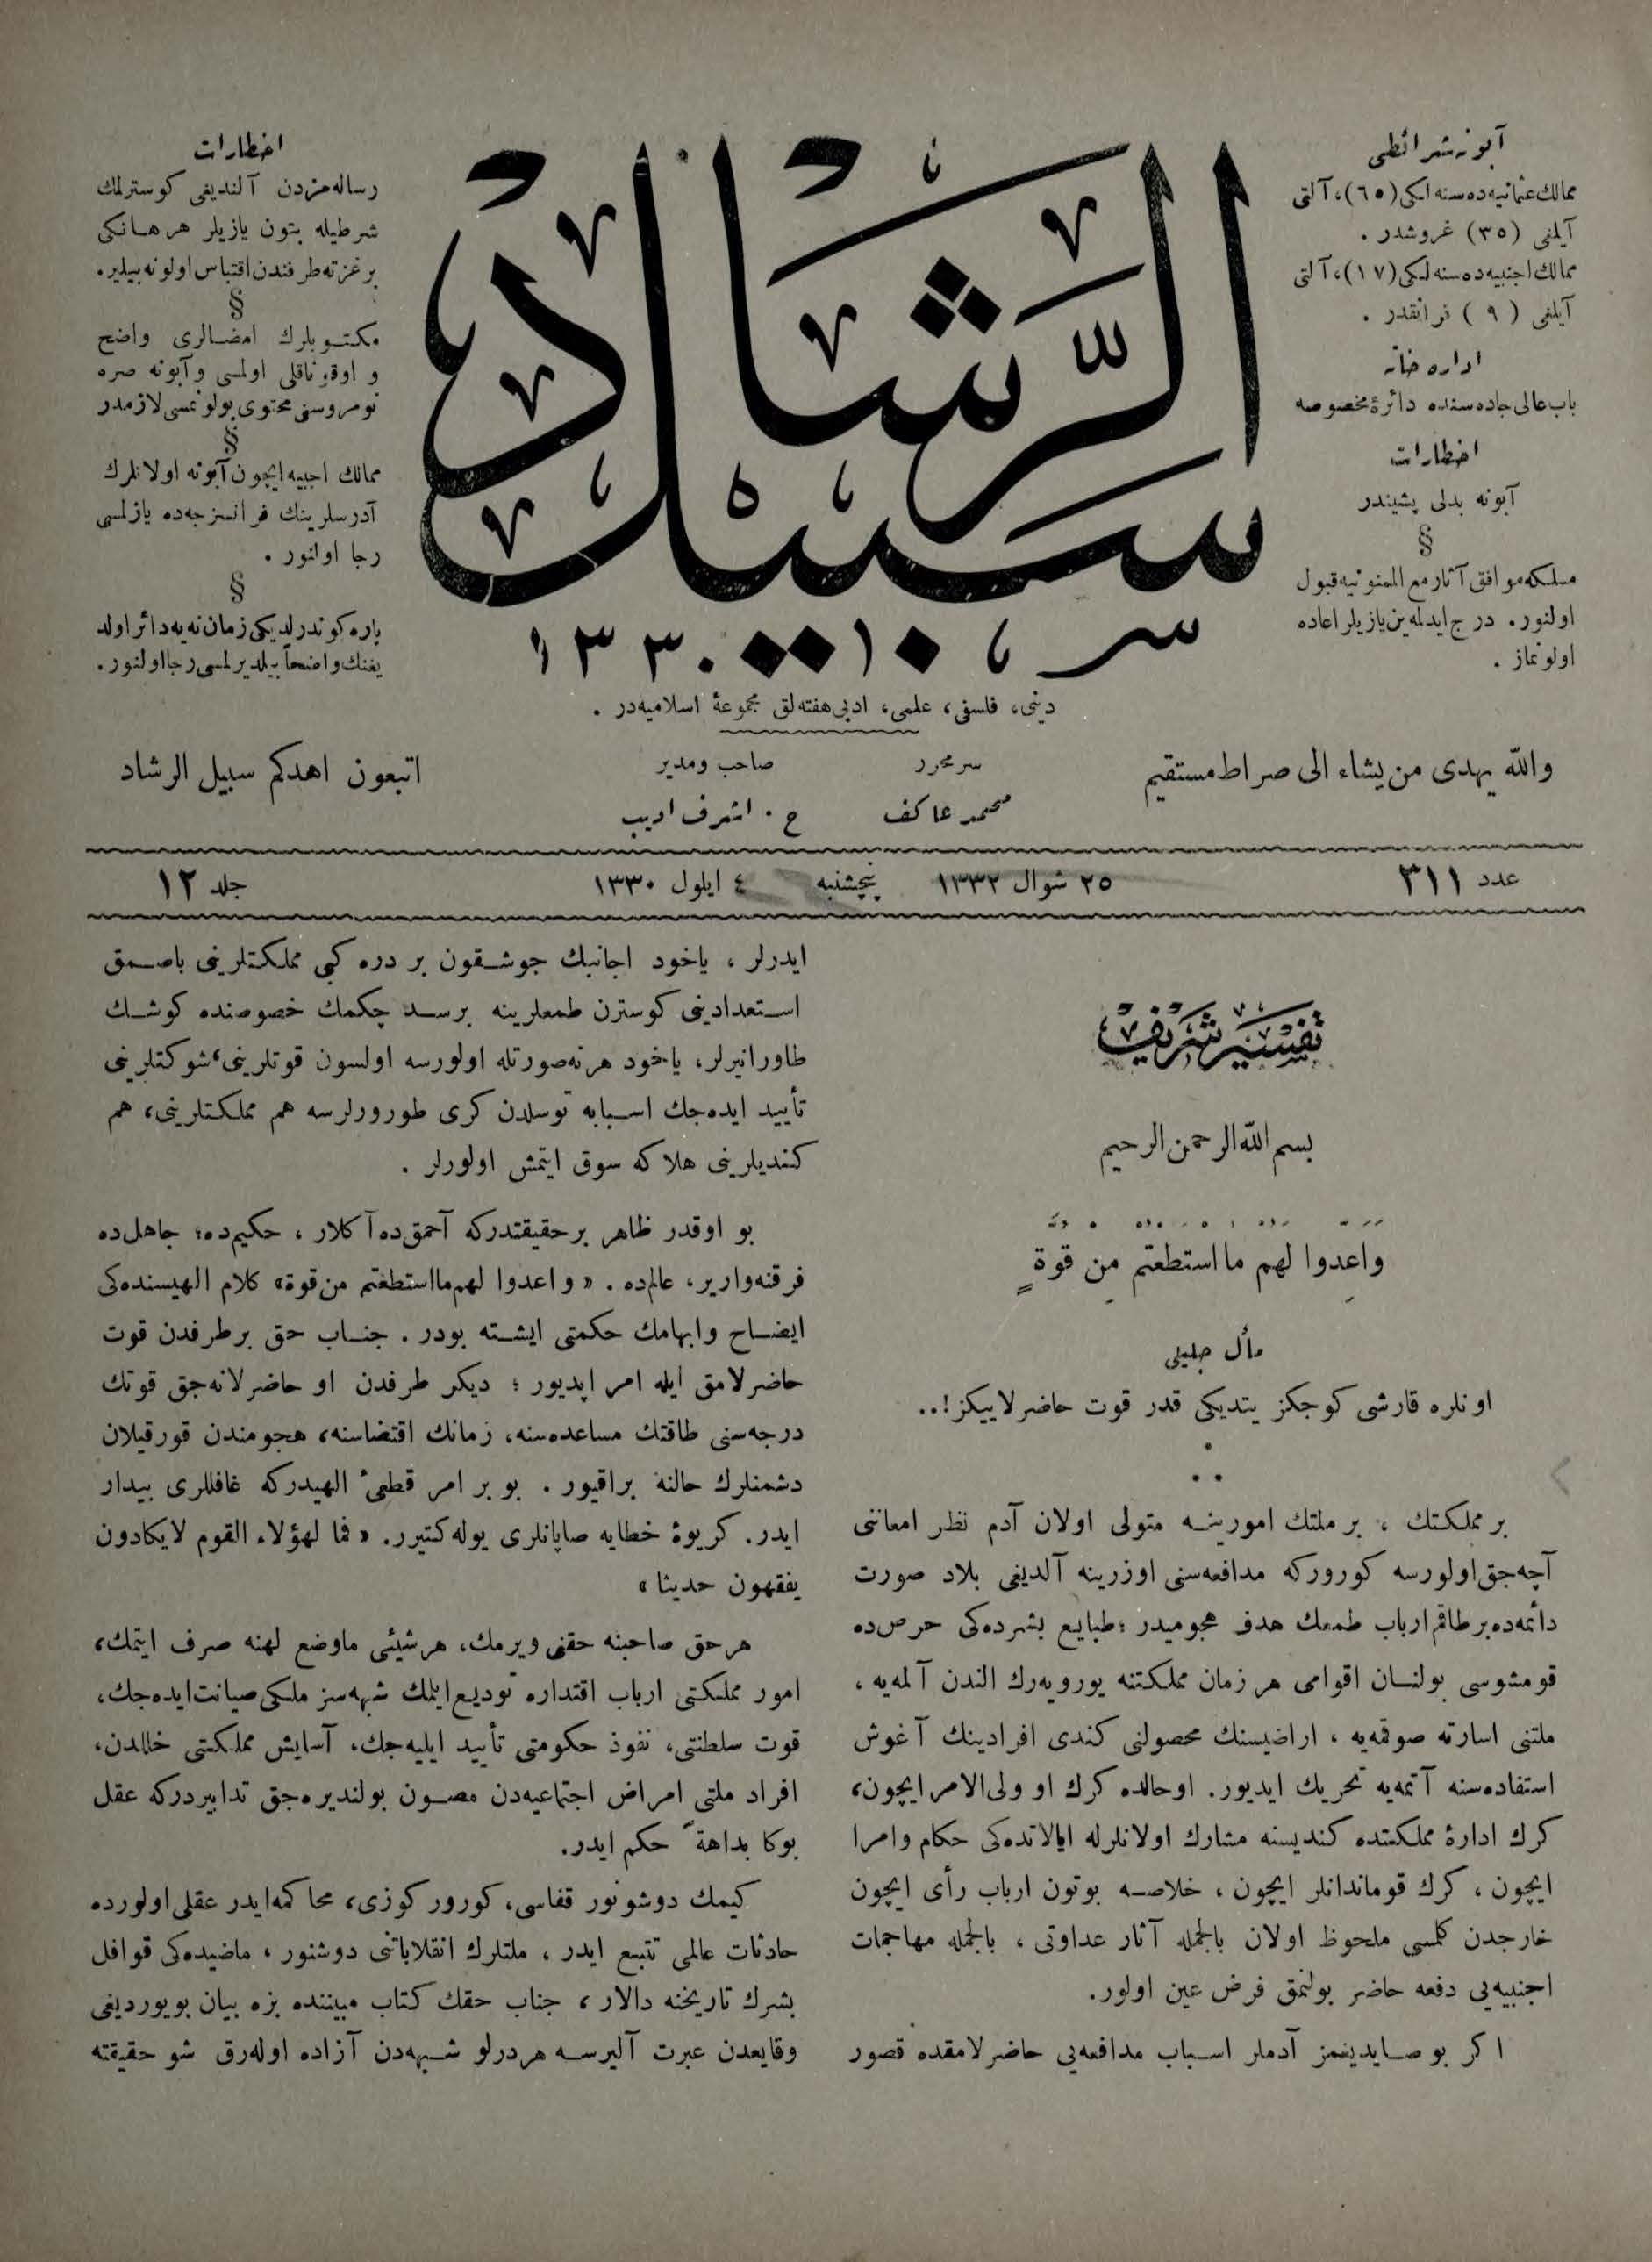 آبونه شرائطی
ممالك عثمانیه‌ده سنه‌لكی (٦٥)، آلتی
آیلغی (٣٥) غروشدر .
ممالك اجنبیه‌ده سنه‌لكی (١٧)، آلتی
آیلغی ( ٩ ) فرانقدر .
اداره خانه
باب عالی جاده‌سنده دائرۀ مخصوصه
اخطارات
آبونه بدلی پشیندر
§
مسلكه موافق آثار مع الممنونیه قبول
اولنور. درج ایدلمه‌ین یازیلر اعاده
اولونماز .
سبیل الرشاد
١٣٣٠
دینی، فلسفی، علمی، ادبی هفته‌لق مجموعۀ اسلامیه‌در .
اخطارات
رساله‌مزدن آلندیغی كوسترلمك
شرطیله بتون یازیلر هر هانكی
بر غزته طرفندن اقتباس اولونه بیلیر.
§
مكتوبلرك امضالری واضح
و اوقوناقلی اولمسی و آبونه صره
نومروسنی محتوی بولونمسی لازمدر
§
ممالك اجنبیه ایچون آبونه اولانلرك
آدرسلرینك فرانسزجه‌ده یازلمسی
رجا اولنور .
§
پاره كوندرلدیكی زمان نه‌یه دائر اولد
یغنك واضحاً بیلدیرلمسی رجا اولنور.
والله یهدی من یشاء الی صراط مستقیم
سرمحرر
محمد عاكف
صاحب ومدیر
ح . اشرف ادیب
اتبعون اهدكم سبیل الرشاد
عدد ٣١١
٢٥ شوال ١٣٣٢
پنچشنبه
٤ ایلول ١٣٣٠
جلد ١٢
تفسیر شریف
بسم الله الرحمن الرحیم
وَاَعِدوا لهم ما استطعتم مِن قوةٍ
مآل جلیلی
اونلره قارشی كوجكز یتدیكی قدر قوت حاضرلاییكز!..
بر مملكتك ، بر ملتك امورینه متولی اولان آدم نظر امعاننی
آچه‌جق اولورسه كورور كه مدافعه‌سنی اوزرینه آلدیغی بلاد صورت
دائمه‌ده بر طاقم ارباب طمعك هدف هجومیدر ؛ طبایع بشرده‌كی حرص ده
قومشوسی بولنان اقوامی هر زمان مملكتنه یورویه‌رك الندن آلمه‌یه ،
ملتنی اسارته صوقمه‌یه ، اراضیسنك محصولنی كندی افرادینك آغوش
استفاده‌سنه آتمه‌یه تحریك ایدیور. اوحالده كرك او ولی الامر ایچون،
كرك ادارۀ مملكتده كندیسنه مشارك اولانلرله ایالاتده‌كی حكام وامرا
ایچون ، كرك قوماندانلر ایچون ، خلاصه بوتون ارباب رأی ایچون
خارجدن كلمسی ملحوظ اولان بالجمله آثار عداوتی ، بالجمله مهاجمات
اجنبیه‌یی دفعه حاضر بولنمق فرض عین اولور.
اكر بو صایدیغمز آدملر اسباب مدافعه‌یی حاضرلامقده قصور
ایدرلر ، یاخود اجانبك جوشقون بر دره كبی مملكتلرینی باصمق
استعدادینی كوسترن طمعلرینه برسد چكمك خصوصنده كوشك
طاورانیرلر، یاخود هر نه صورتله اولورسه اولسون قوتلرینی، شوكتلرینی
تأیید ایده‌جك اسبابه توسلدن كری طورورلرسه هم مملكتلرینی، هم
كندیلرینی هلاكه سوق ایتمش اولورلر .
بو اوقدر ظاهر بر حقیقتدركه آحمق ده آكلار ، حكیم ده؛ جاهل ده
فرقنه واریر، عالم ده . « و اعدوا لهم ما استطعتم من قوة» كلام الهیسنده‌كی
ایضاح وابهامك حكمتی ایشته بودر . جناب حق بر طرفدن قوت
حاضرلامق ایله امر ایدیور ؛ دیكر طرفدن او حاضرلانه‌جق قوتك
درجه‌سنی طاقتك مساعده‌سنه، زمانك اقتضاسنه، هجومندن قورقیلان
دشمنلرك حالنه براقیور . بو بر امر قطعئ الهیدركه غافللری بیدار
ایدر. كریوۀ خطایه صاپانلری یوله كتیرر. « فما لهؤلاء القوم لایكادون
یفقهون حدیثا »
هر حق صاحبنه حقنی ویرمك، هر شیئی ماوضع لهنه صرف ایتمك،
امور مملكتی ارباب اقتداره تودیع ایلمك شبهه‌سز ملكی صیانت ایده‌جك،
قوت سلطنتی، نفوذ حكومتی تأیید ایلیه‌جك، آسایش مملكتی خللدن،
افراد ملتی امراض اجتماعیه‌دن مصون بولندیره‌جق تدابیردركه عقل
بوكا بداهةً حكم ایدر.
كیمك دوشونور قفاسی، كورور كوزی، محاكمه ایدر عقلی اولورده
حادثات عالمی تتبع ایدر ، ملتلرك انقلاباتنی دوشنور ، ماضیده‌كی قوافل
بشرك تاریخنه دالار ، جناب حقك كتاب مبیننده بزه بیان بویوردیغی
وقایعدن عبرت آلیرسه هر درلو شبهه‌دن آزاده اوله‌رق شو حقیقته